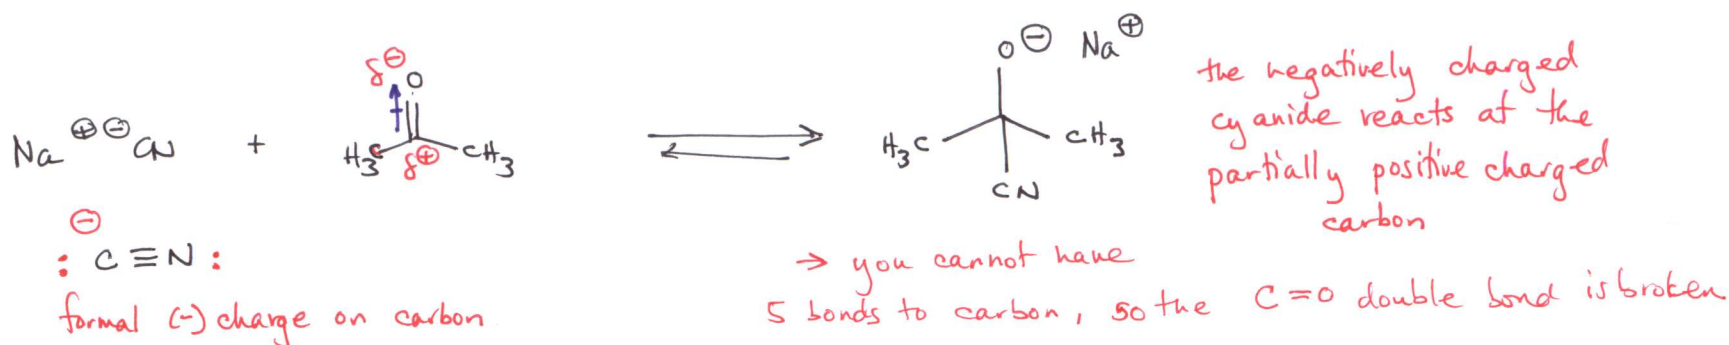 δ⊖
O
Na⊕ ⊖CN + H₃C δ⊕ CH₃
O⊖ Na⊕
H₃C CH₃
CN
the negatively charged
cyanide reacts at the
partially positive charged
carbon
⊖
:C≡N:
formal (-) charge on carbon
→ you cannot have
5 bonds to carbon, so the C=O double bond is broken